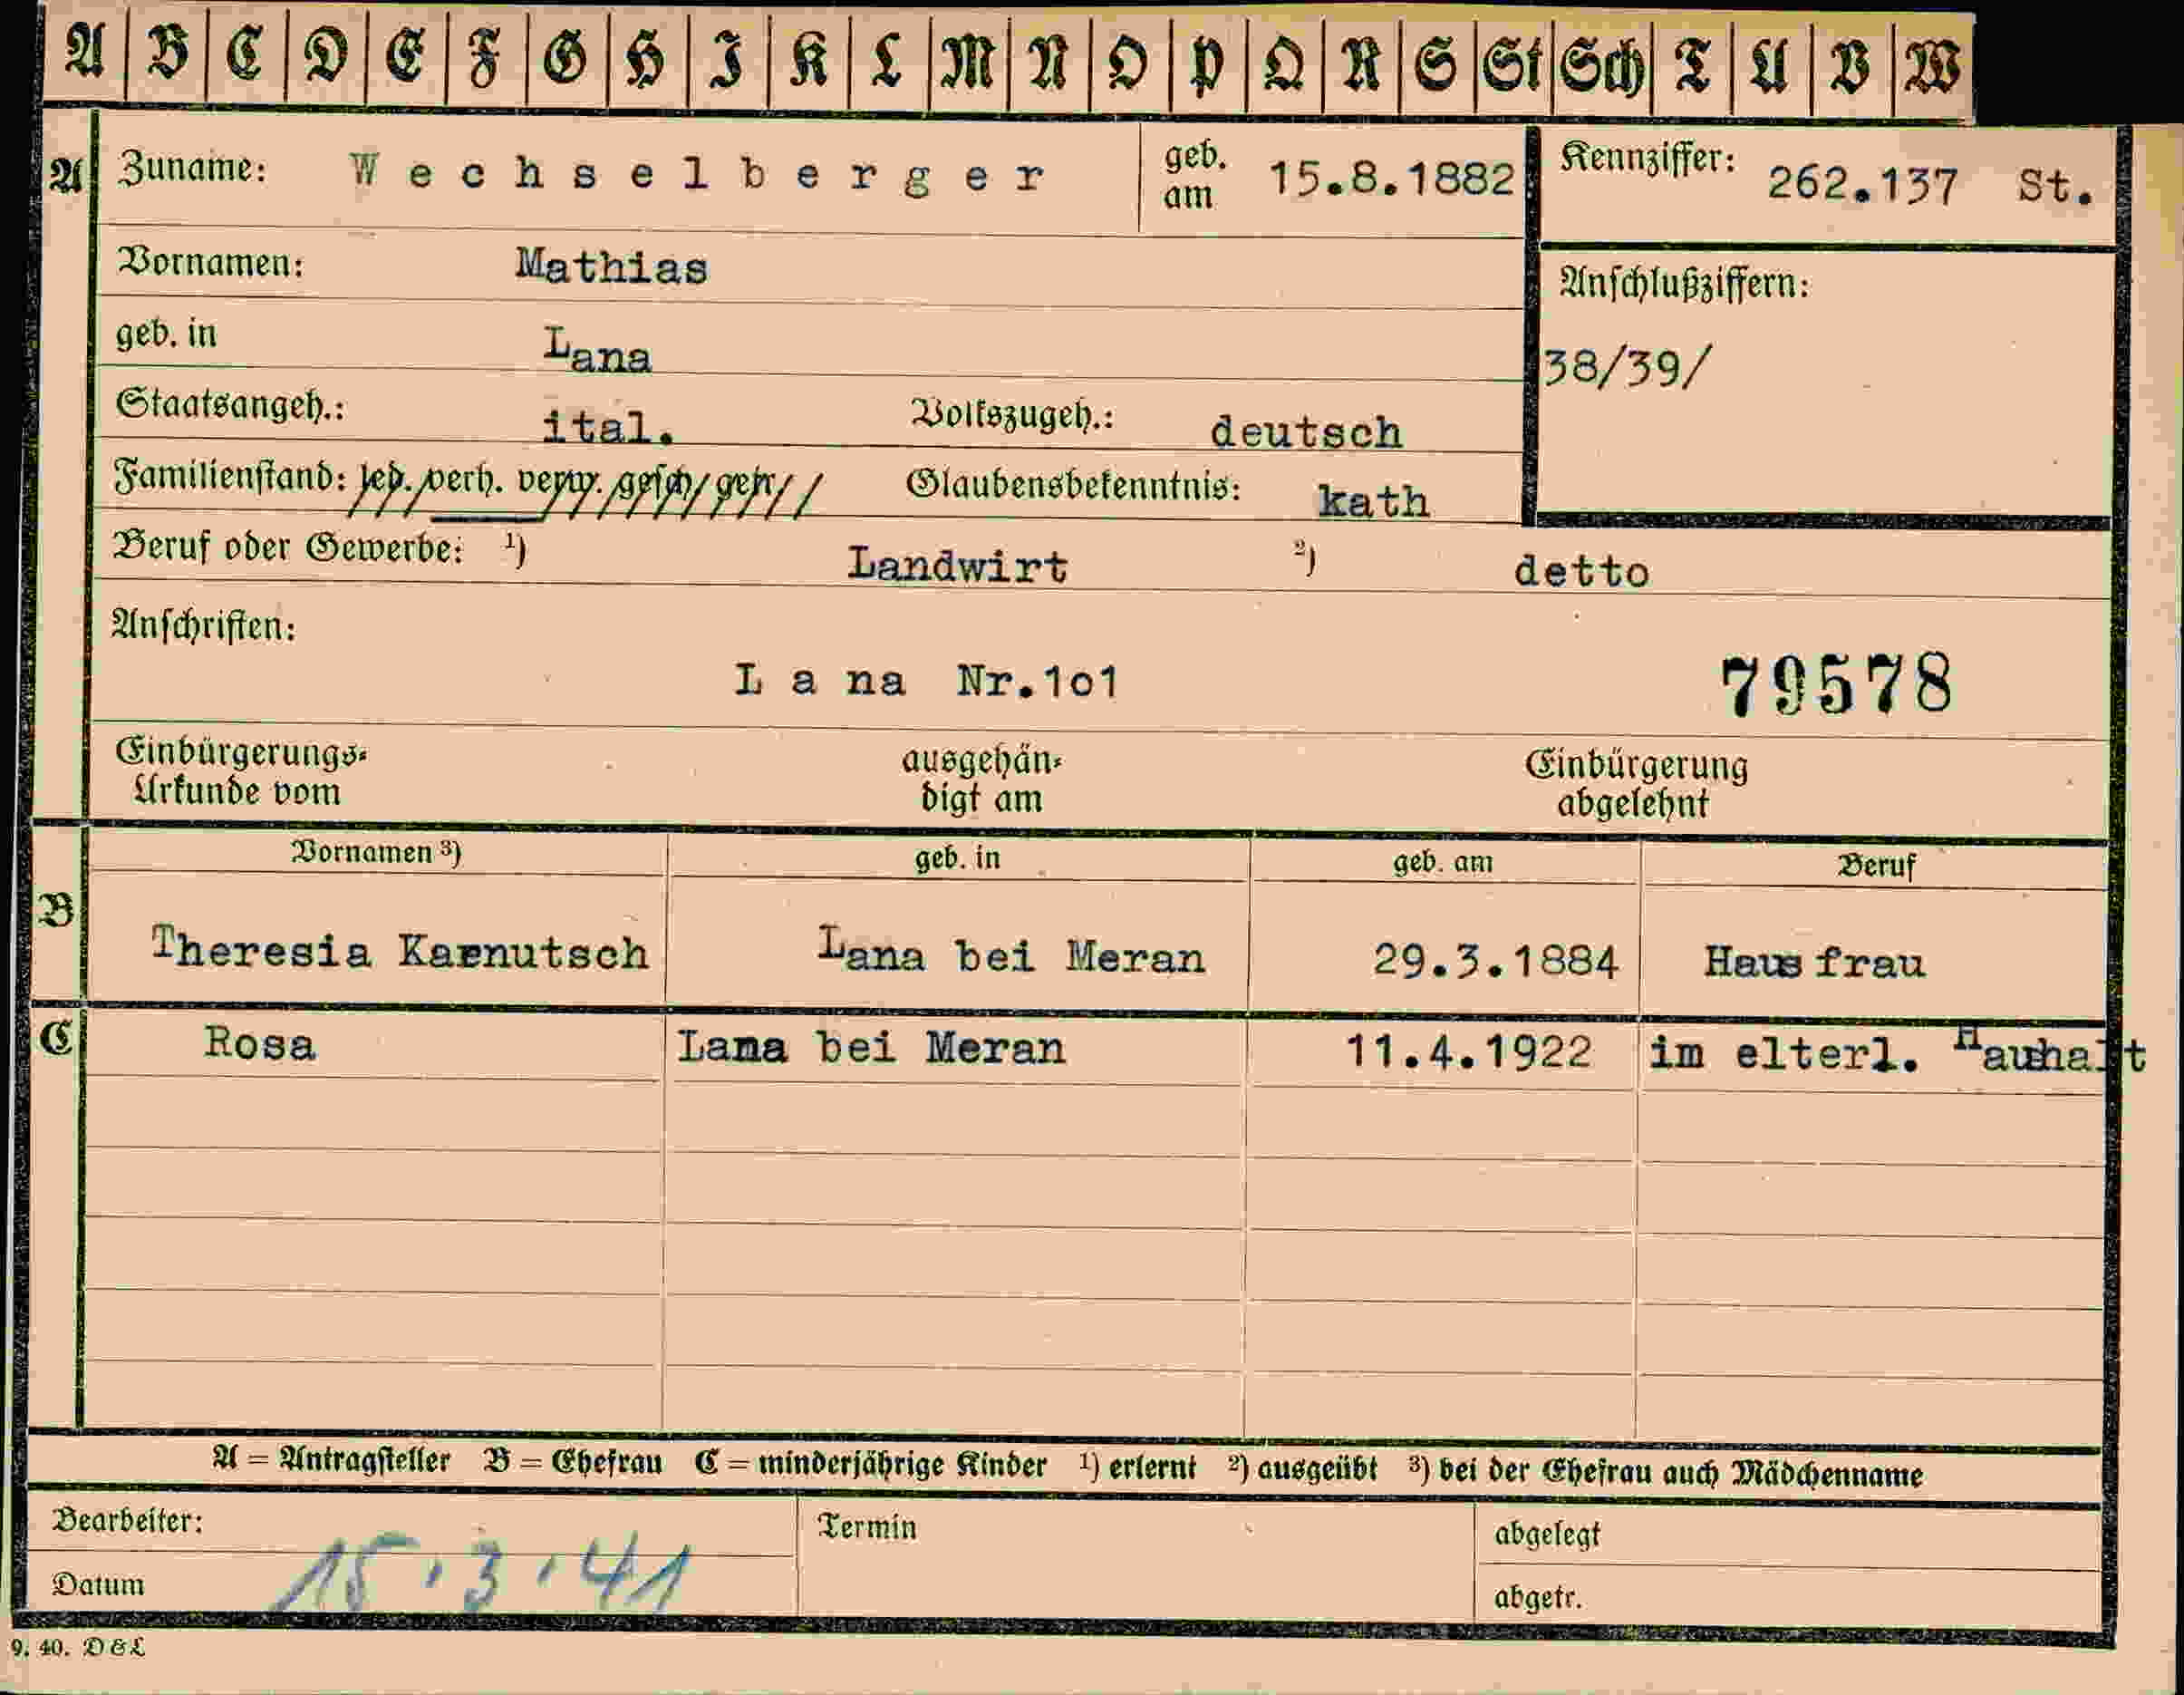 A B C D E F G H I K L M N O P Q R S St Sch T U V W
A Zuname: Wechselberger geb. am 15.8.1882 Kennziffer: 262.137 St.
Vornamen: Mathias Anschlußziffern:
geb. in Lana 38/39/
Staatsangeh.: ital. Volkszugeh.: deutsch
Familienstand: led. verh. verw. gesch. getr. Glaubensbekenntnis: kath
Beruf oder Gewerbe: ¹) Landwirt ²) detto
Anschriften:
Lana Nr.1o1 79578
Einbürgerungs- ausgehän- Einbürgerung
Urkunde vom digt am abgelehnt
Vornamen ³) geb. in geb. am Beruf
B Theresia Karnutsch Lana bei Meran 29.3.1884 Hausfrau
C Rosa Lana bei Meran 11.4.1922 im elterl. Hauhalt
A = Antragsteller B = Ehefrau C = minderjährige Kinder ¹) erlernt ²) ausgeübt ³) bei der Ehefrau auch Mädchenname
Bearbeiter: Termin abgelegt
Datum 15.3.41 abgetr.
9. 40. D & L